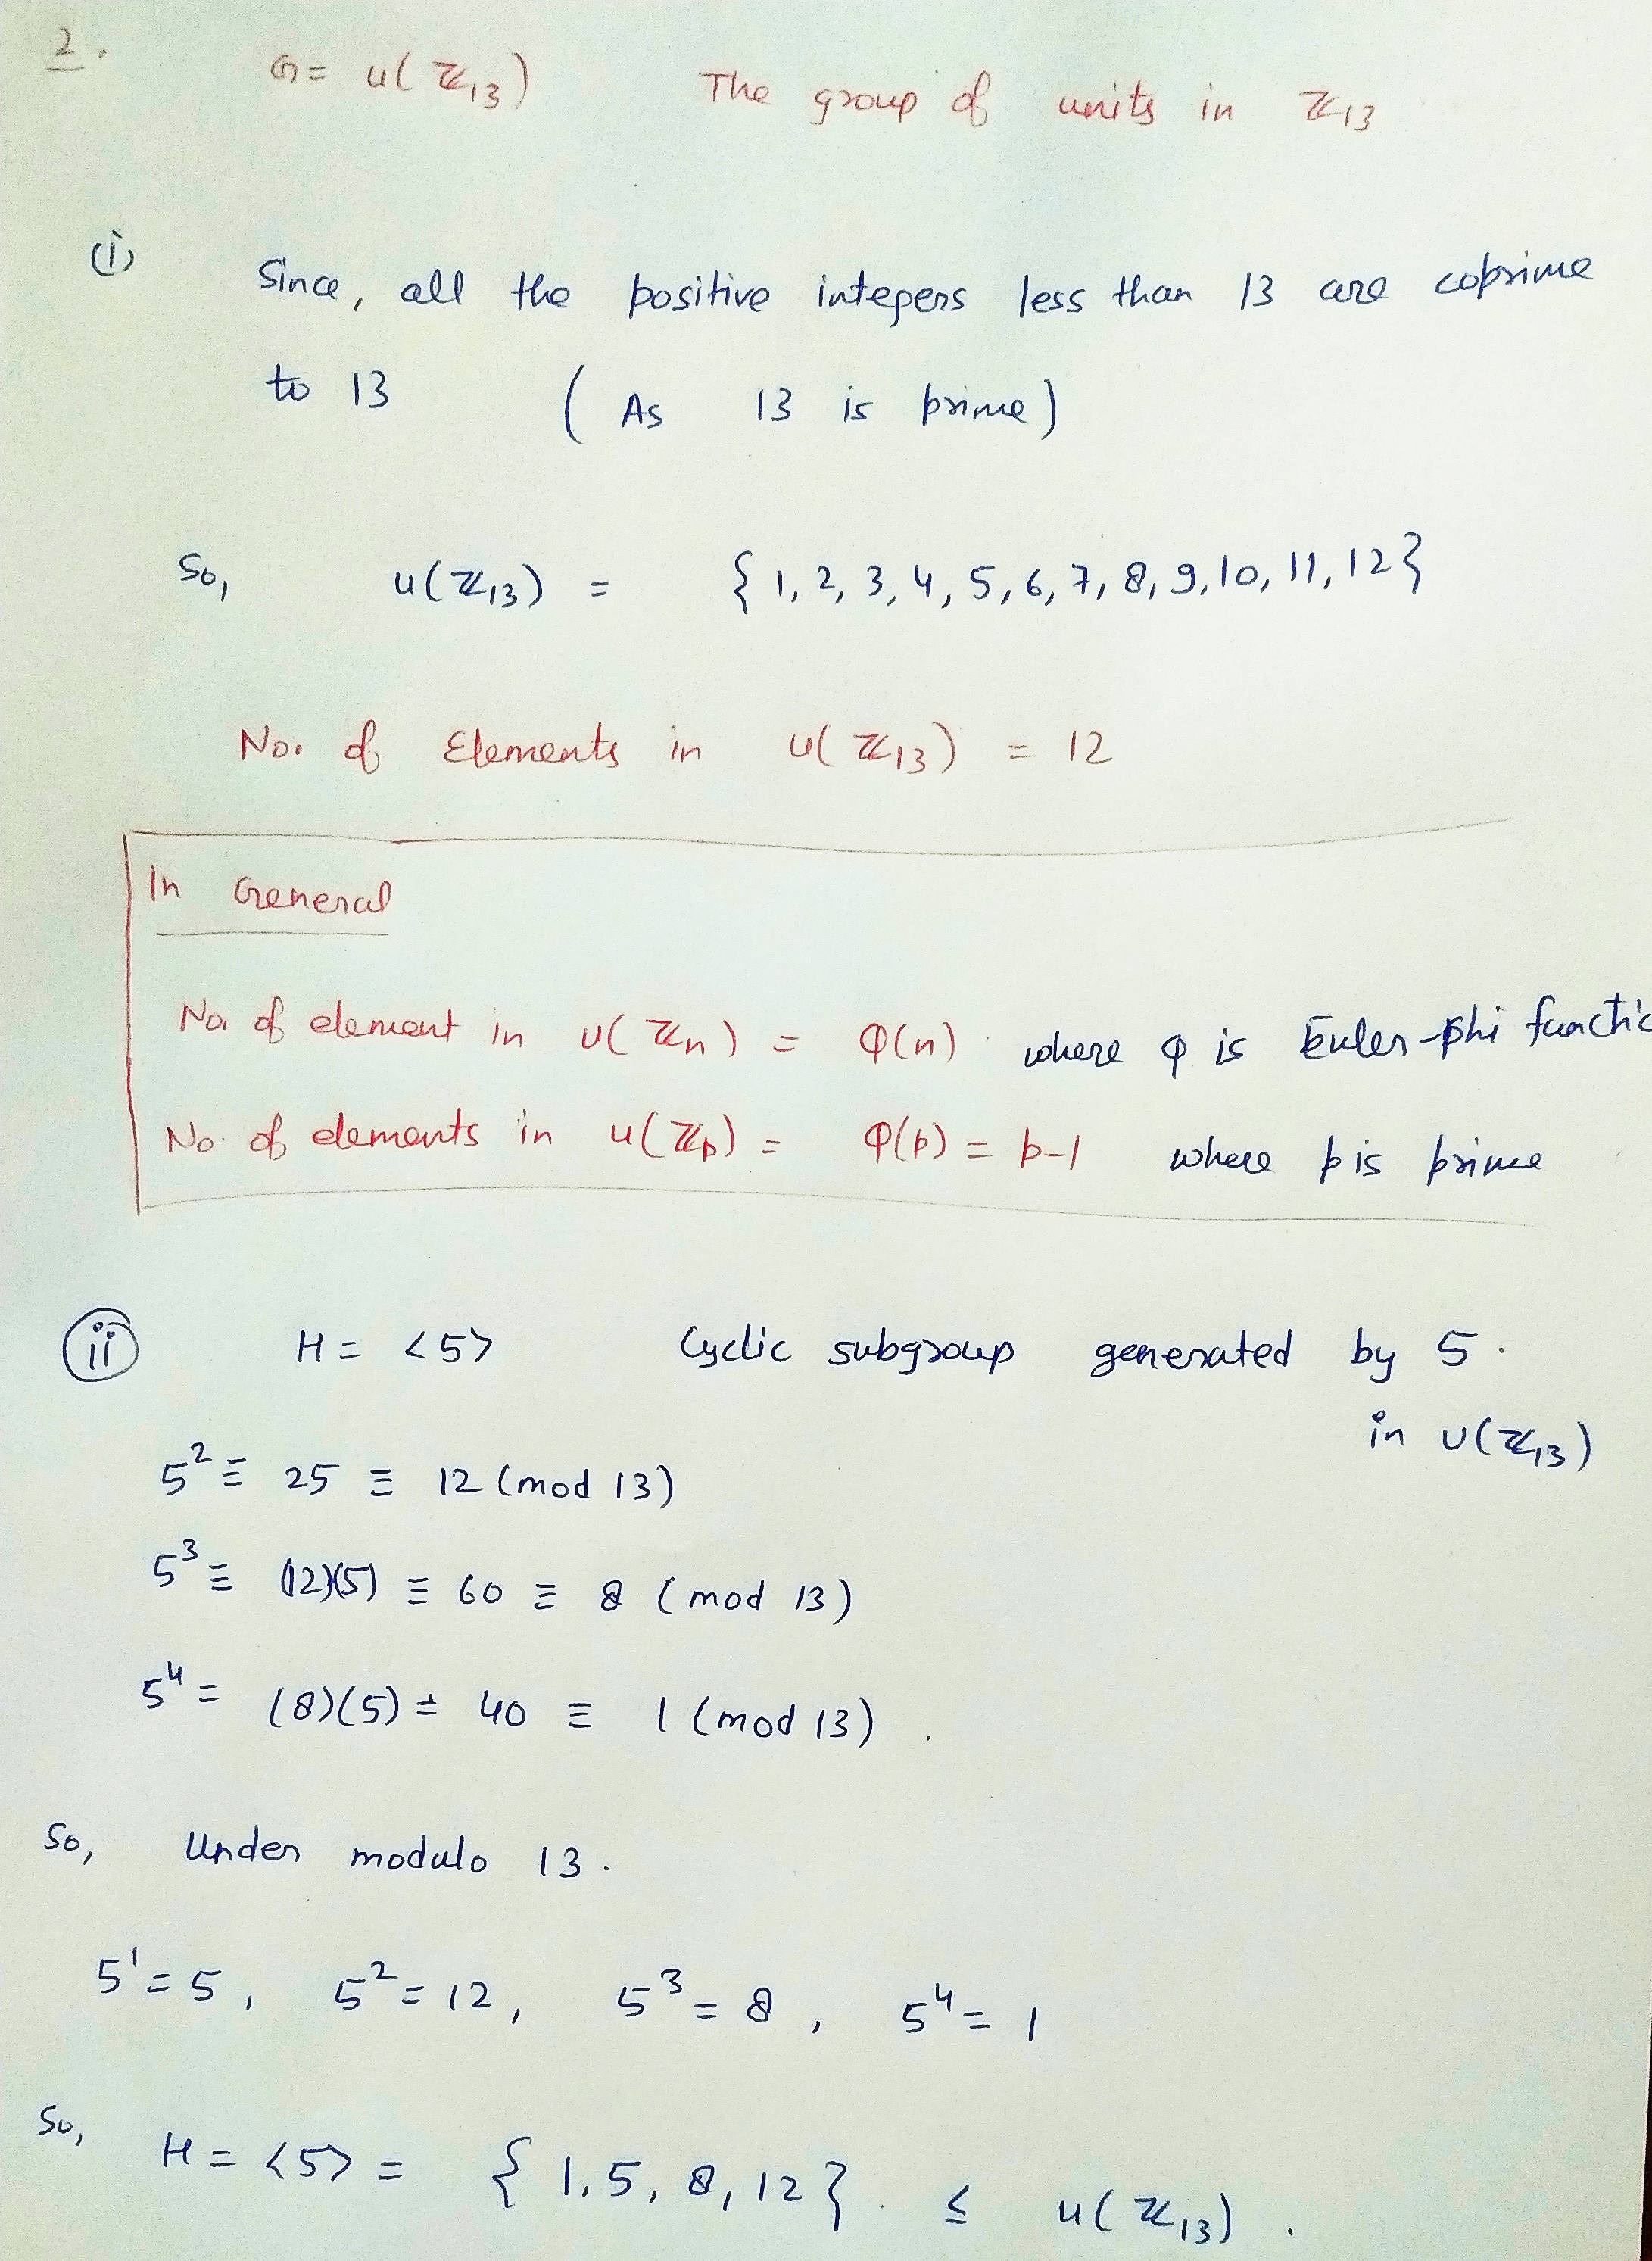 2.
G = u(ℤ₁₃) The group of units in ℤ₁₃
(i)
Since, all the positive integers less than 13 are coprime
to 13 ( As 13 is prime)
So, u(ℤ₁₃) = { 1, 2, 3, 4, 5, 6, 7, 8, 9, 10, 11, 12 }
No. of Elements in u(ℤ₁₃) = 12
In General
No. of element in U(ℤₙ) = φ(n) where φ is Euler-phi functio
No. of elements in u(ℤₚ) = φ(p) = p-1 where p is prime
(ii) H = <5> Cyclic subgroup generated by 5.
in U(ℤ₁₃)
5² ≡ 25 ≡ 12 (mod 13)
5³ ≡ (12)(5) ≡ 60 ≡ 8 (mod 13)
5⁴ = (8)(5) = 40 ≡ 1 (mod 13).
So, Under modulo 13.
5¹ = 5, 5² = 12, 5³ = 8, 5⁴ = 1
So, H = <5> = { 1, 5, 8, 12 } ≤ u(ℤ₁₃).